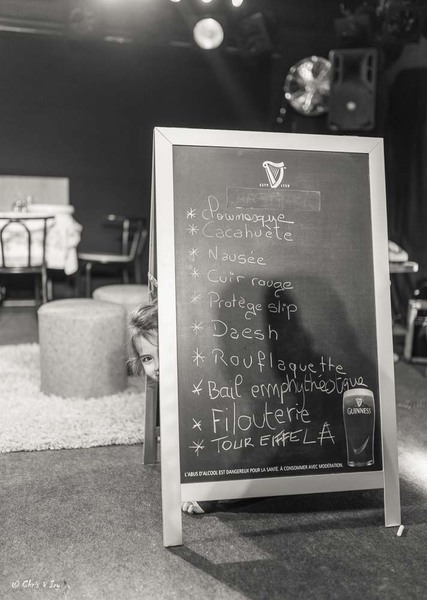 * Clownesque
* Cacahuète
* Nausée
* Cuir rouge
* Protège slip
* Daesh
* Rouflaquette
* Bail emphythéotique
* Filouterie
* TOUR EIFFELA
GUINNESS
L'ABUS D'ALCOOL EST DANGEREUX POUR LA SANTÉ. À CONSOMMER AVEC MODÉRATION.